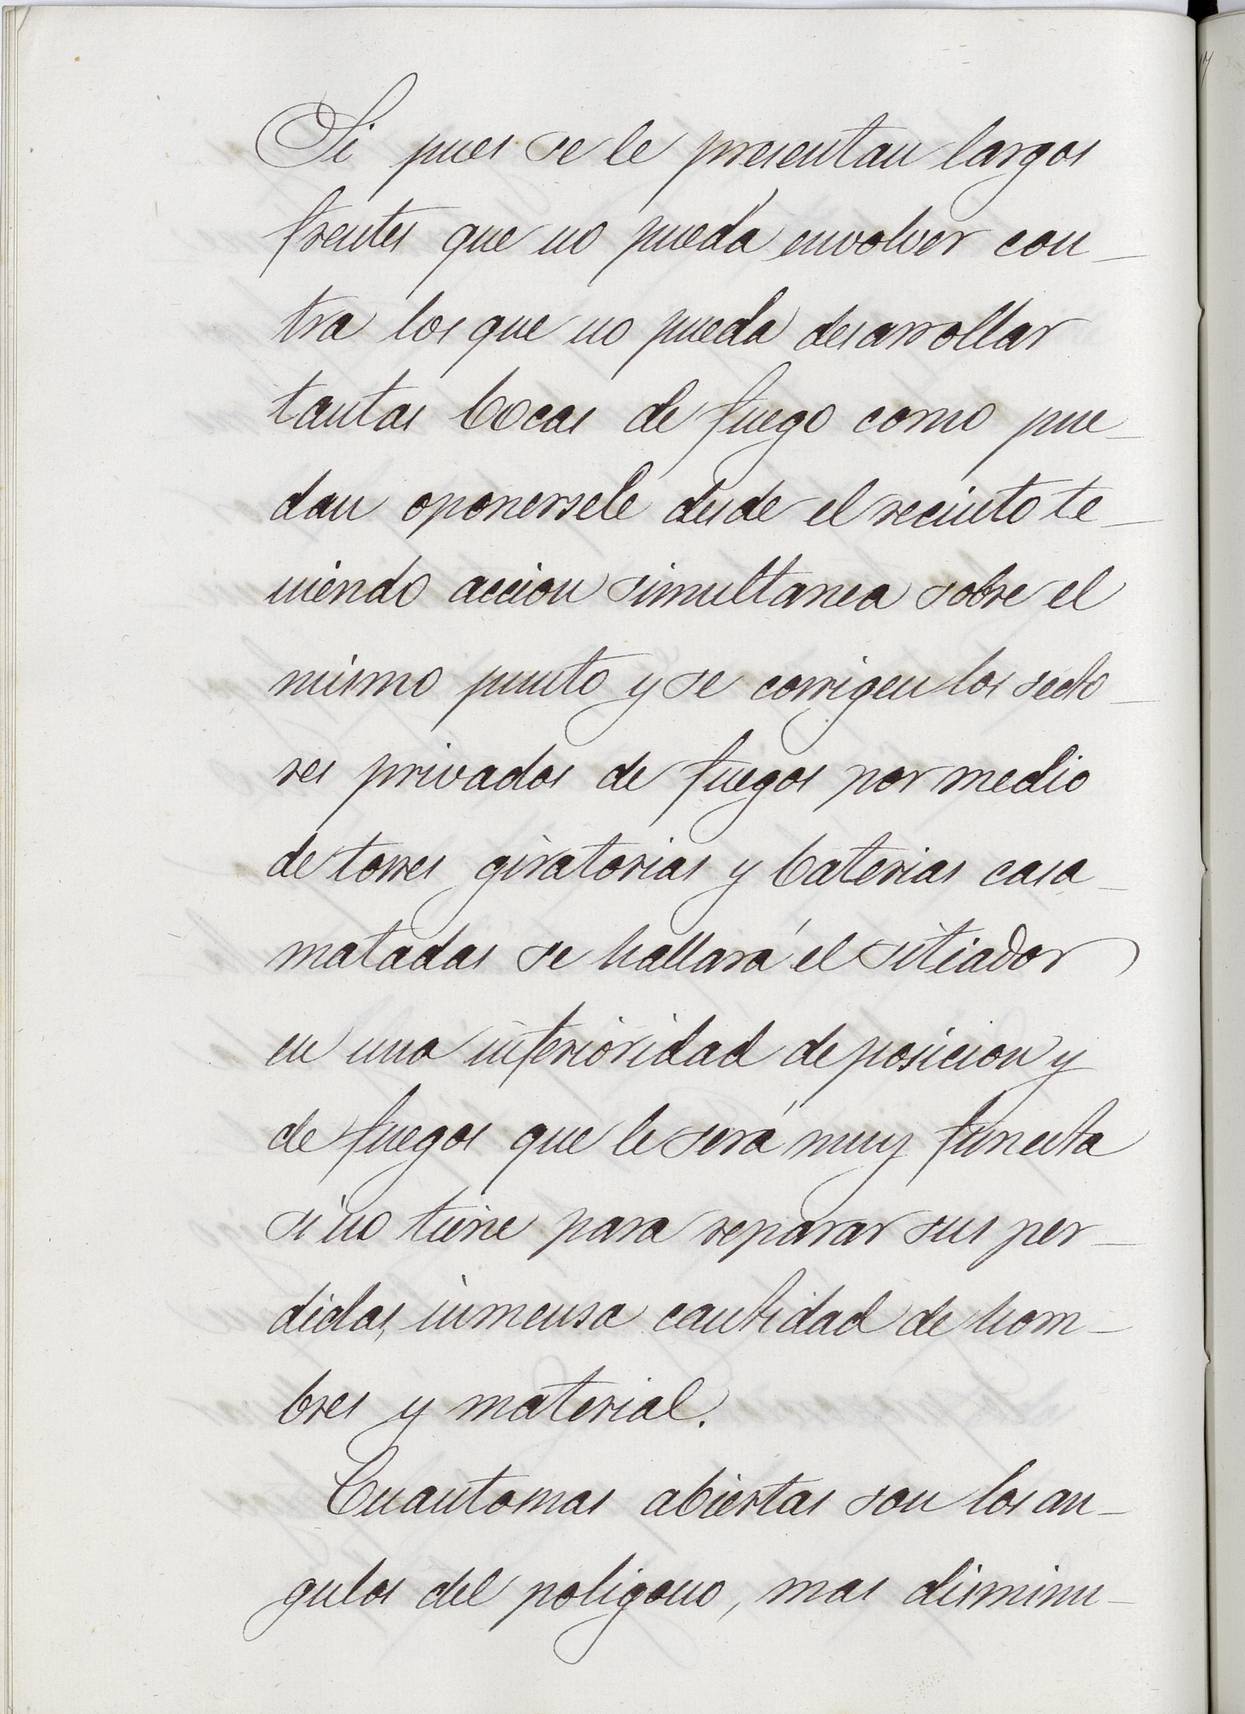 Si pues se le presentan largos
frentes que no pueda envolver con_
tra los que no pueda desarrollar
tantas bocas de fuego como pue_
dan oponersele desde el recinto te_
niendo accion simultanea sobre el
mismo punto y se corrigen los secto_
res privados de fuegos por medio
de torres giratorias y baterias casa_
matadas se hallará el sitiador
en una inferioridad de posicion y
de fuegos que le será muy funesta
si no tiene para reparar sus per_
didas, inmensa cantidad de hom_
bres y material.
Cuanto mas abiertas son los an_
gulos del poligono, mas disminu_